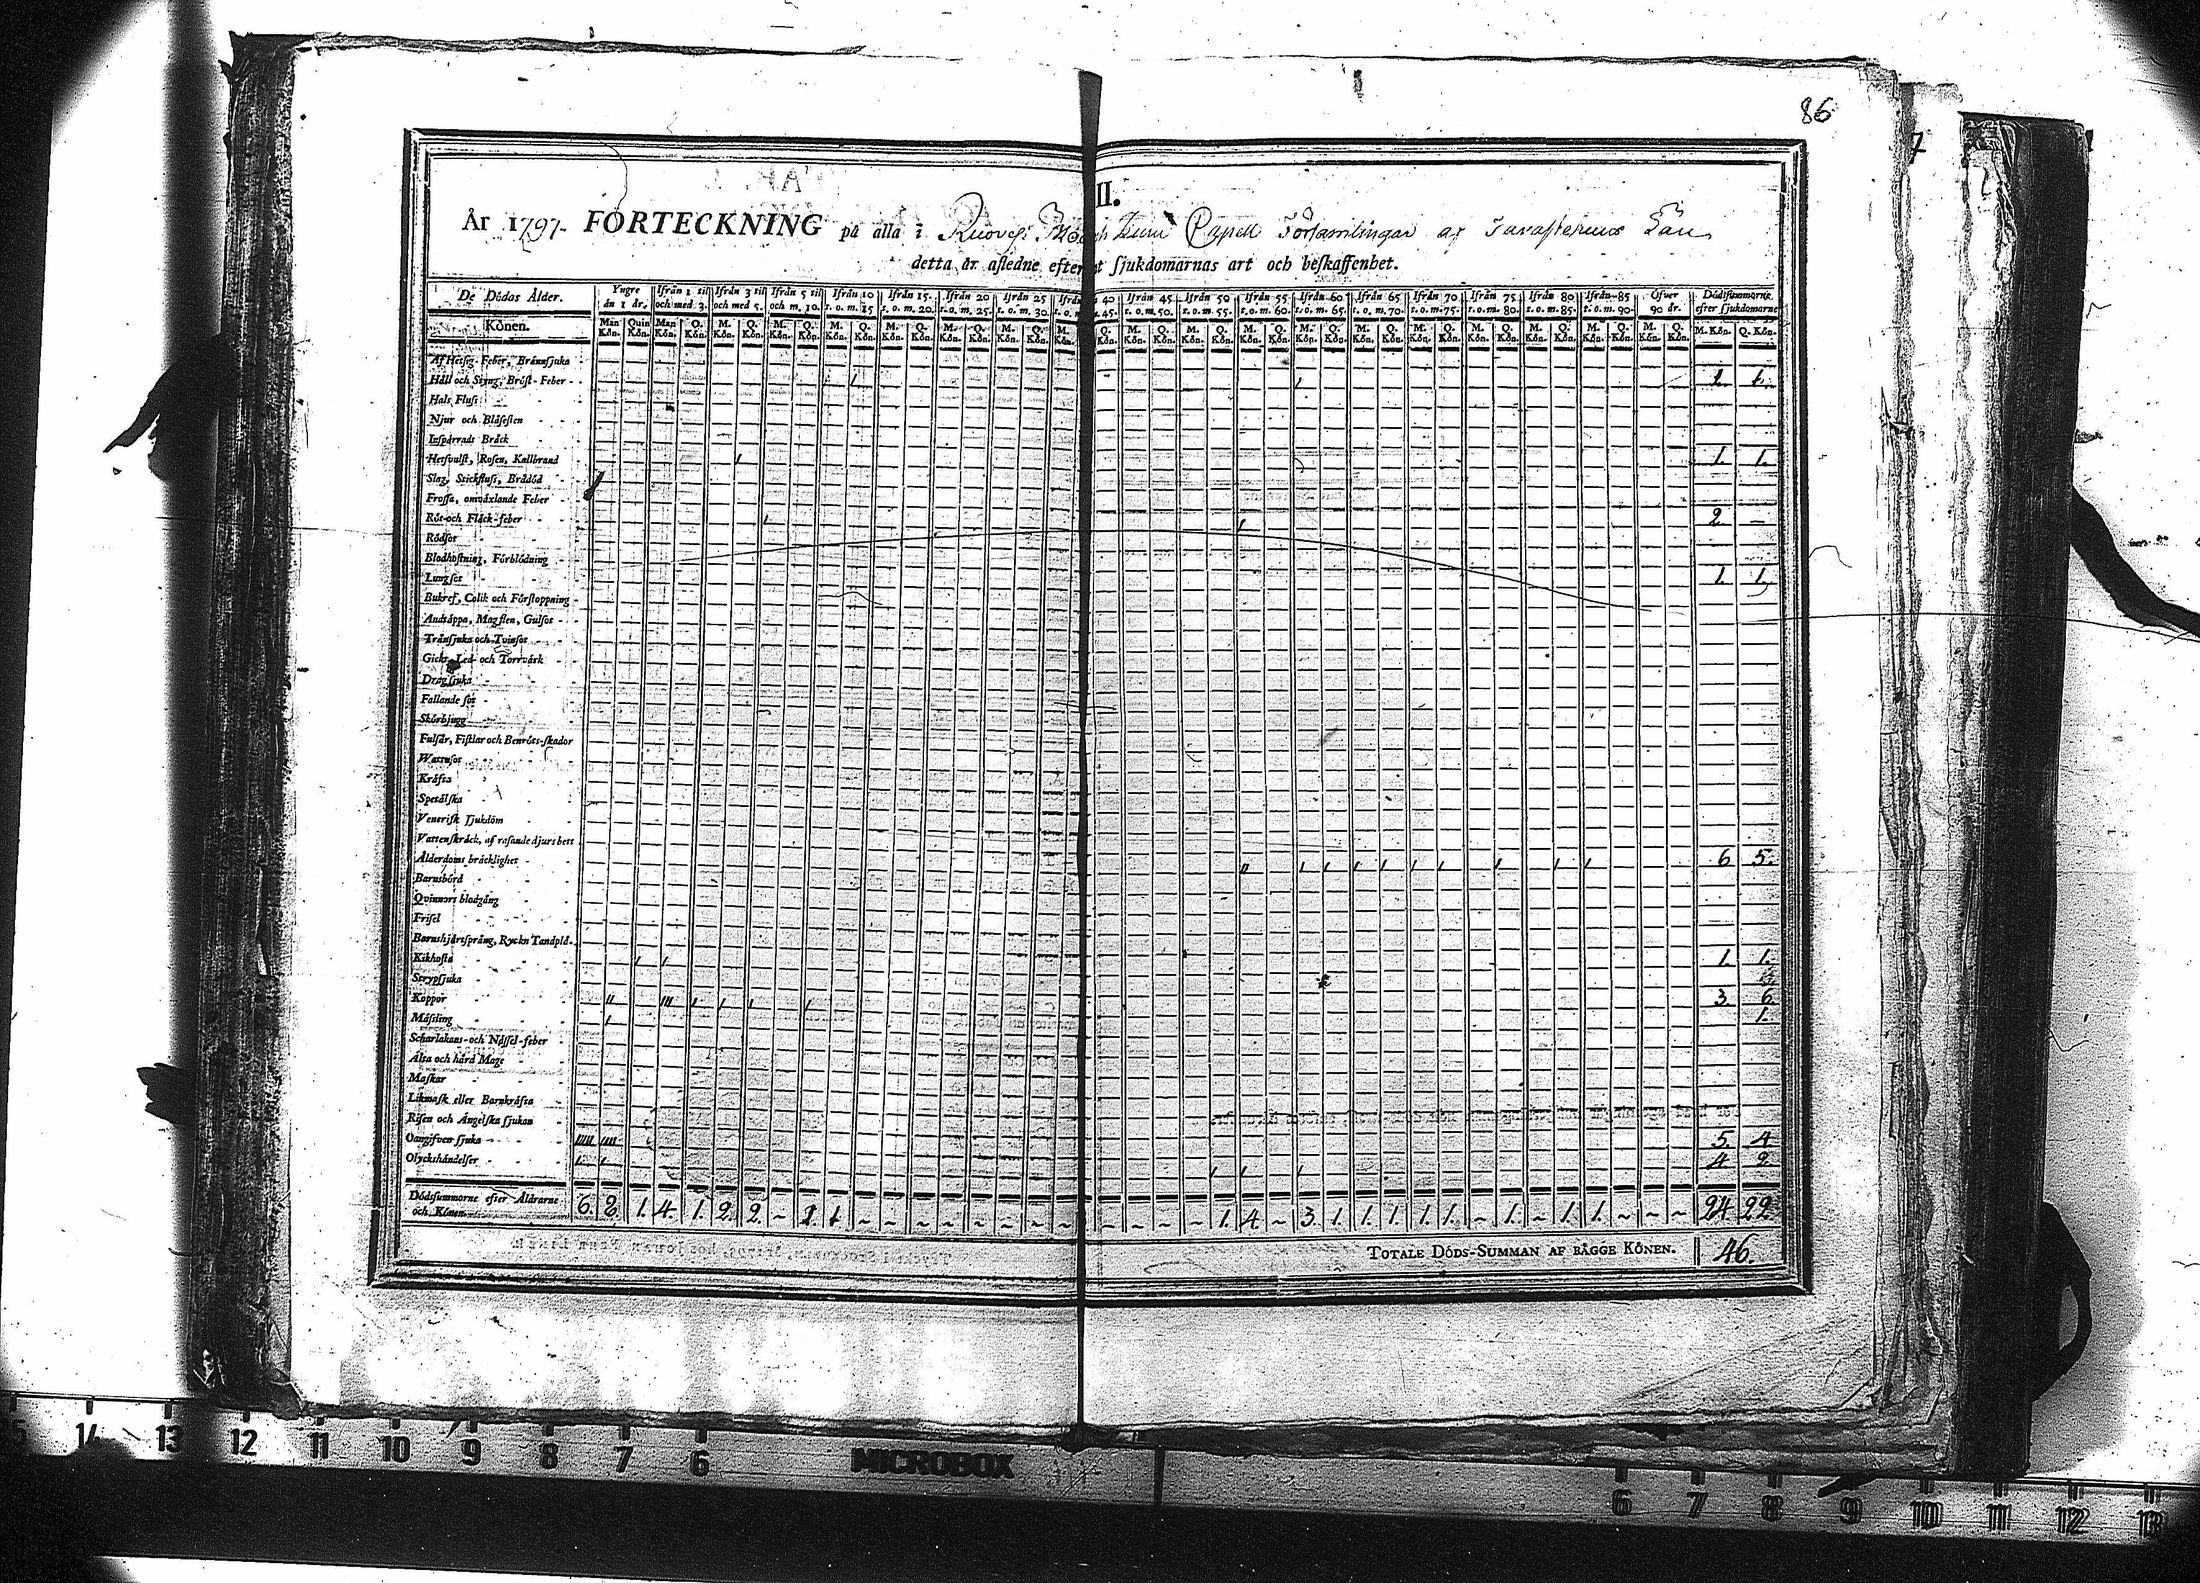 86
7
II.
År 1797. FÖRTECKNING på alla i Ruovesi Moder och Kuru Capell Församlingar af Tavastehus Län
detta år afledne efter sjukdomarnas art och beskaffenhet.
De Dödas Ålder. Yngre än 1 år. Ifrån 1 til och med 3. Ifrån 3 til och med 5. Ifrån 5 til och m. 10. Ifrån 10 t. o. m. 15 Ifrån 15. t. o. m. 20. Ifrån 20 t. o. m. 25. Ifrån 25 t. o. m. 30. Ifrån 40 45. Ifrån 45. t. o. m. 50. Ifrån 50 t. o. m. 55. Ifrån 55 t. o. m. 60. Ifrån 60 t. o. m. 65. Ifrån 65 t. o. m. 70. Ifrån 70 t. o. m. 75. Ifrån 75. t. o. m. 80. Ifrån 80 t. o. m. 85. Ifrån 85 t. o. m. 90. Öfver 90 år. Dödssummorne efter sjukdomarne
Könen. Man Kön. Quin Kön. Man Kön. Q. Kön. M. Kön. Q. Kön. M. Kön. Q. Kön. M. Kön. Q. Kön. M. Kön. Q. Kön. M. Kön. Q. Kön. M. Kön. Q. Kön. M. Kön. Q. Kön. M. Kön. Q. Kön. M. Kön. Q. Kön. M. Kön. Q. Kön. M. Kön. Q. Kön. M. Kön. Q. Kön. M. Kön. Q. Kön. M. Kön. Q. Kön. M. Kön. Q. Kön. M. Kön. Q. Kön. M. Kön. Q. Kön. M. Kön. Q. Kön.
Af Hetsig Feber, Brännsjuka
Håll och Styng, Bröst-Feber 1. 1.
Hals Fluss
Njur och Blåsesten
Inspärradt Bråck
Hetsvulst, Rosen, Kallbrand 1. 1.
Slag, Stickfluss, Brådöd
Frossa, omväxlande Feber
Röt-och Fläck-feber 2 —
Rödsot
Blodhostning, Förblödning
Lungsot 1. 1.
Bukref, Colik och Förstoppning
Andtäppa, Magsten, Gulsot
Trånsjuka och Tvinsot
Gickt, Led- och Torrvärk
Dragsjuka
Fallande sot
Skörbjugg
Fulsår, Fistlar och Benröts-skador
Wattusot
Kräfta
Spetälska
Venerisk sjukdom
Vattenskräck, af rasande djurs bett
Ålderdoms bräcklighet 6 5.
Barnsbörd
Qvinnors blodgång
Frisel
Barnshjärtsprång, Ryckn Tandplå.
Kikhosta 1. 1.
Strypsjuka
Koppor 3. 6
Mässling 1.
Scharlakans-och Nässel-feber
Älta och hård Mage
Maskar
Likmask eller Barnkräfta
Risen och Ängelska sjukan
Oangifven sjuka 5. 4
Olyckshändelser 4 2.
Dödssummorne efter Åldrarne och Könen. 6. 2. 1. 4. 1. 2. 2. ~ 1 1. ~ ~ ~ ~ ~ ~ ~ ~ ~ ~ ~ ~ 1. 4. ~ 3. 1. 1. 1. 1. 1. ~ 1. ~ 1. 1. ~ ~ ~ 24 22
TOTALE DÖDS-SUMMAN AF BÅGGE KÖNEN. 46.
14 13 12 11 10 9 8 7 6 MICROBOX 6 7 8 9 10 11 12 13